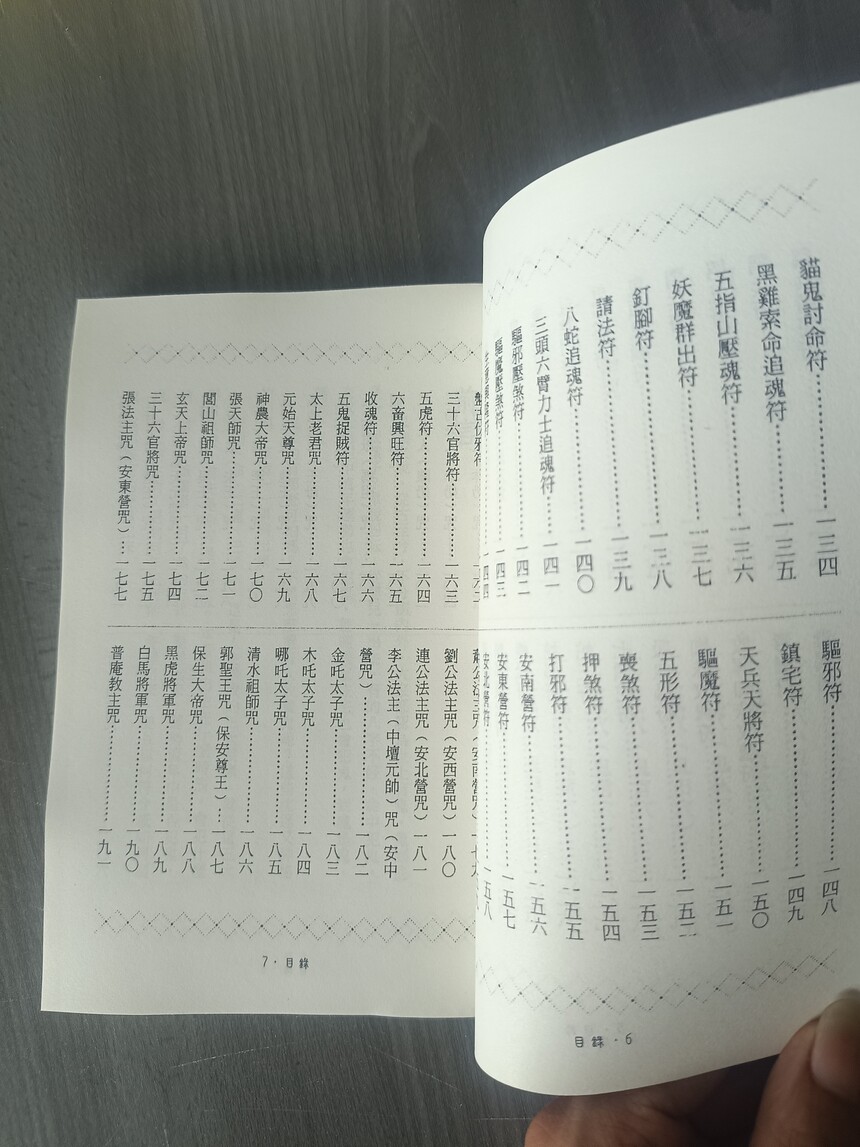 貓鬼討命符……………一三四
黑雞索命追魂符……………一三五
五指山壓魂符……………一三六
妖魔群出符……………一三七
釘腳符……………一三八
請法符……………一三九
八蛇追魂符……………一四〇
三頭六臂力士追魂符……………一四一
驅邪壓煞符……………一四二
驅魔壓煞符……………一四三
一四四
驅邪符……………一四八
鎮宅符……………一四九
天兵天將符……………一五〇
驅魔符……………一五一
五形符……………一五二
喪煞符……………一五三
押煞符……………一五四
打邪符……………一五五
安南營符……………一五六
安東營符……………一五七
安北營符……………一五八
目錄·6
盤古伏邪符
三十六官將符……………一六三
五虎符……………一六四
六畜興旺符……………一六五
收魂符……………一六六
五鬼捉賊符……………一六七
太上老君咒……………一六八
元始天尊咒……………一六九
神農大帝咒……………一七〇
張天師咒……………一七一
閭山祖師咒……………一七二
玄天上帝咒……………一七四
三十六官將咒……………一七五
張法主咒（安東營咒）…一七七
公法主咒（安南營咒）
劉公法主咒（安西營咒）一八〇
連公法主咒（安北營咒）一八一
李公法主（中壇元帥）咒（安中
營咒）……………一八二
金吒太子咒……………一八三
木吒太子咒……………一八四
哪吒太子咒……………一八五
清水祖師咒……………一八六
郭聖王咒（保安尊王）…一八七
保生大帝咒……………一八八
黑虎將軍咒……………一八九
白馬將軍咒……………一九〇
普庵教主咒……………一九一
7·目錄